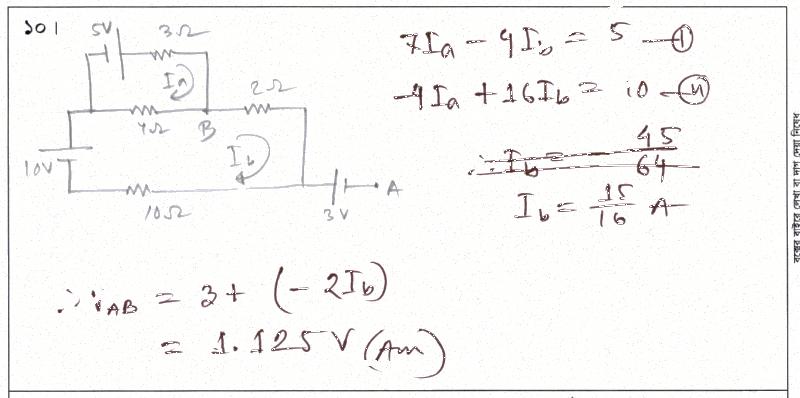 ১০।
5V 3Ω
Ia
2Ω
4Ω B
Ib
10V
10Ω
3V
A
7Ia - 4Ib = 5 —①
-4Ia + 16Ib = 10 —⑪
∴ Ib = - 45/64
Ib = 15/16 A
∴ VAB = 3 + (- 2Ib)
= 1.125 V (Am)
বক্সের বাইরে লেখা বা দাগ দেয়া নিষেধ